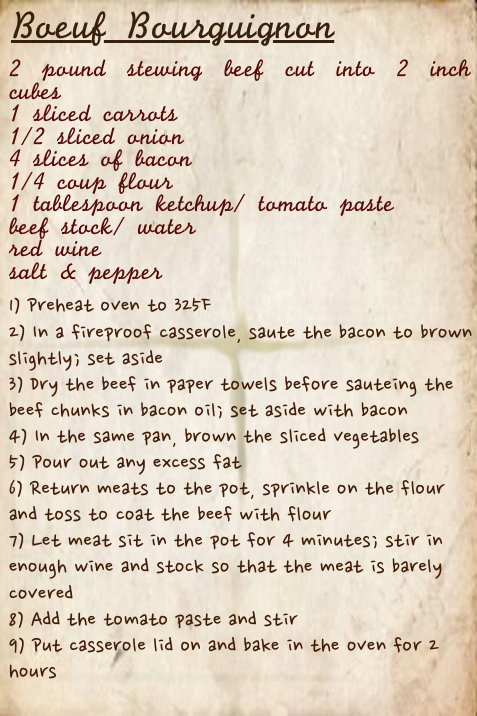 Boeuf Bourguignon
2 pound stewing beef cut into 2 inch
cubes
1 sliced carrots
1/2 sliced onion
4 slices of bacon
1/4 coup flour
1 tablespoon ketchup/ tomato paste
beef stock/ water
red wine
salt & pepper
1) Preheat oven to 325F
2) In a fireproof casserole, saute the bacon to brown
slightly; set aside
3) Dry the beef in paper towels before sauteing the
beef chunks in bacon oil; set aside with bacon
4) In the same pan, brown the sliced vegetables
5) Pour out any excess fat
6) Return meats to the pot, sprinkle on the flour
and toss to coat the beef with flour
7) Let meat sit in the pot for 4 minutes; stir in
enough wine and stock so that the meat is barely
covered
8) Add the tomato paste and stir
9) Put casserole lid on and bake in the oven for 2
hours